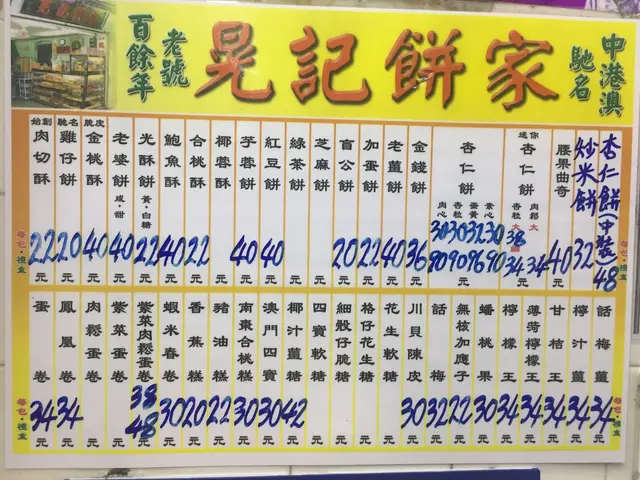 百餘年
老號
晃記餅家
中港澳
馳名
始創肉切酥 22元
馳名雞仔餅 20元
脆皮金桃酥 40元
老婆餅 咸·甜 40元
光酥餅 黃·白糖 22元
鮑魚酥 40元
合桃酥 22元
椰蓉酥 元
芋蓉餅 40元
紅豆餅 40元
綠茶餅 元
芝麻餅 元
盲公餅 20元
加蛋餅 22元
老薑餅 40元
金錢餅 36元
杏仁餅
肉心 30 80元
杏粒 30 90元
蛋黃 32 96元
素心 30 90元
迷你杏仁餅
杏粒大 38 34元
肉鬆大 34元
腰果曲奇 40元
炒米餅 32
杏仁餅(中裝) 48元
每包·禮盒
蛋卷 34元
鳳凰卷 34元
肉鬆蛋卷 元
紫菜蛋卷 元
紫菜肉鬆蛋卷 38 48元
蝦米春卷 30元
香蕉糕 20元
豬油糕 22元
南棗合桃糕 30元
澳門四寶 30元
椰汁薑糖 42元
四寶軟糖 元
細骰仔脆糖 元
格仔花生糖 元
花生軟糖 元
川貝陳皮 30元
話梅 32元
無核加應子 22元
蟠桃果 30元
檸檬王 34元
薄荷檸檬王 34元
甘桔王 34元
檸汁薑 34元
話梅薑 34元
每包·禮盒